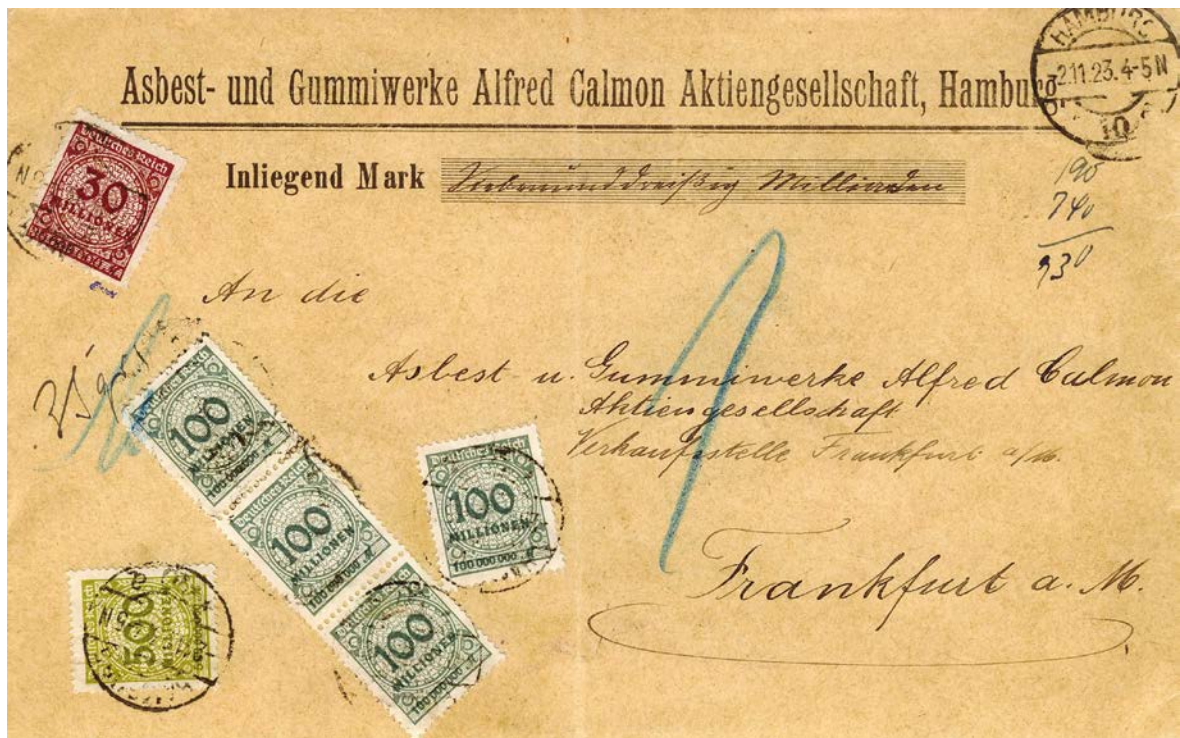 HAMBURG
2.11.23. 4-5 N
10
Asbest- und Gummiwerke Alfred Calmon Aktiengesellschaft, Hamburg
Inliegend Mark Siebenunddreißig Milliarden
190
740
930
Deutsches Reich
30
MILLIONEN
An die
Asbest- u. Gummiwerke Alfred Calmon
Aktiengesellschaft
Verkaufsstelle Frankfurt a/M.
Frankfurt a. M.
Deutsches Reich
100
MILLIONEN
100 000 000 M
Deutsches Reich
100
MILLIONEN
100 000 000 M
Deutsches Reich
100
MILLIONEN
100 000 000 M
Deutsches Reich
100
MILLIONEN
100 000 000 M
500
MILLIONEN